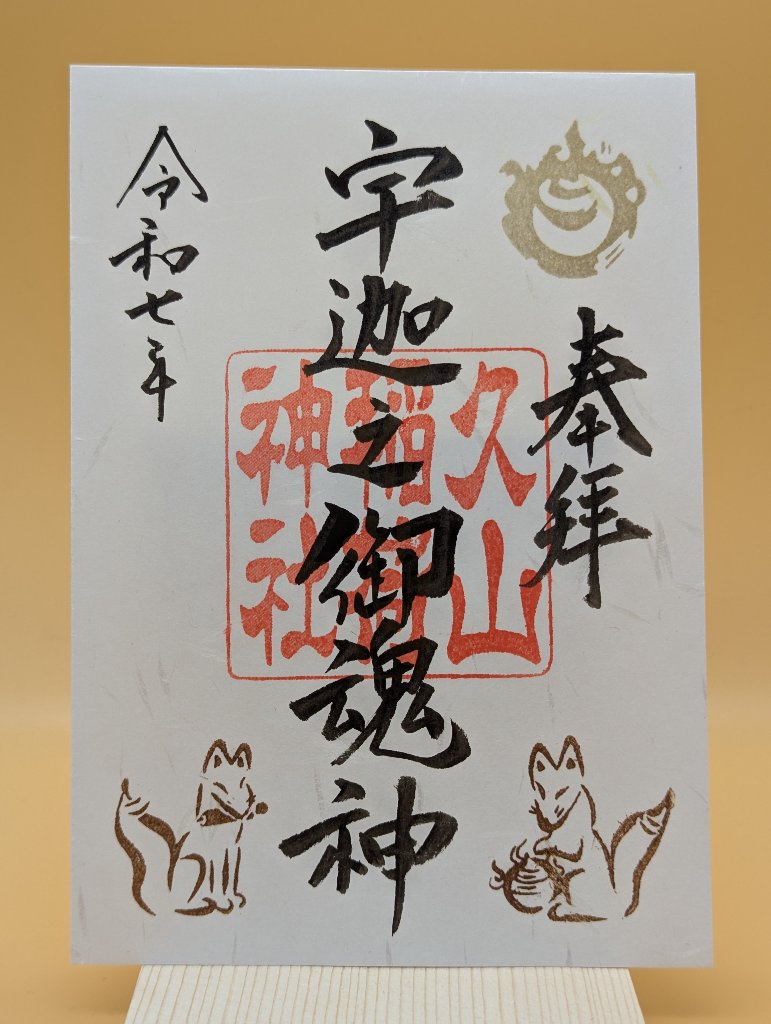 奉拝
宇迦之御魂神
令和七年
久山
稲荷
神社